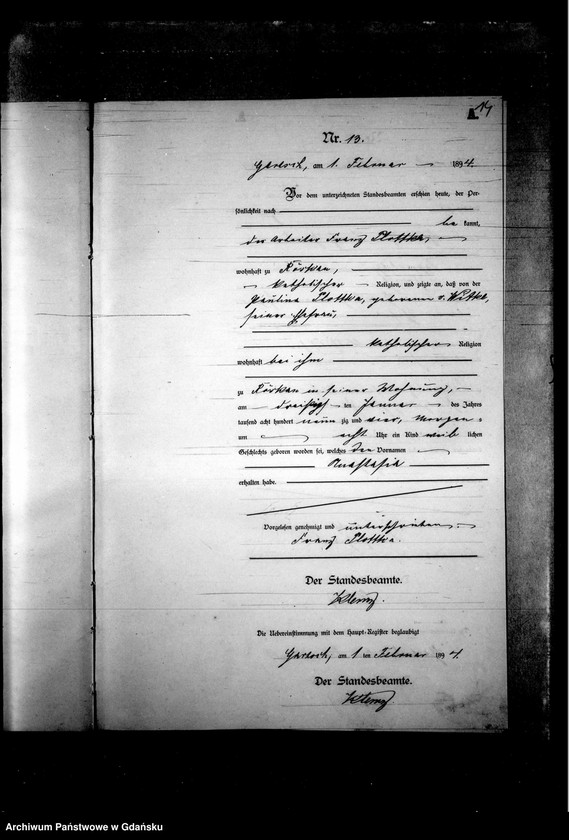 14
Nr. 13.
am 1. Februar 1894.
Vor dem unterzeichneten Standesbeamten erschien heute, der Per-
sönlichkeit nach
be kannt,
der Arbeiter Franz Plottka,
wohnhaft zu
katholischer Religion, und zeigte an, daß von der
Pauline Plottka, geborenen
seiner Ehefrau,
katholischer Religion
wohnhaft bei ihm
zu in seiner Wohnung,
am dreißigsten Januar des Jahres
tausend acht hundert neun zig und vier, Morgens
um acht Uhr ein Kind weib lichen
Geschlechts geboren worden sei, welches den Vornamen
Anastasia
erhalten habe.
Vorgelesen genehmigt und unterschrieben.
Franz Plottka.
Der Standesbeamte.
Die Uebereinstimmung mit dem Haupt-Register beglaubigt
am 1 ten Februar 1894.
Der Standesbeamte.
Archiwum Państwowe w Gdańsku